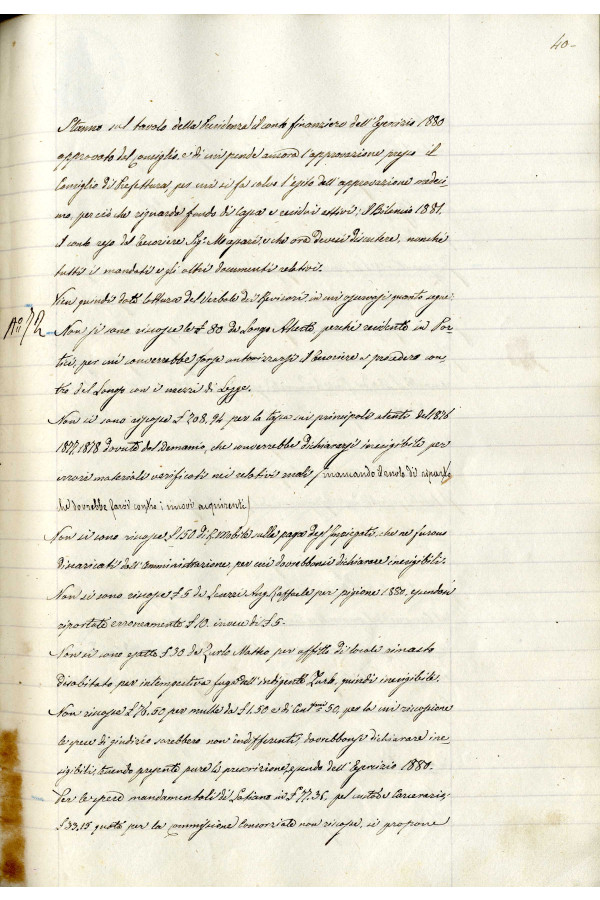 40-
Stanno sul tavolo della Presidenza il conto finanziero dell'Esercizio 1880
approvato dal Consiglio, e di cui pende ancora l'approvazione presso il
Consiglio di Prefettura, per cui si fa salvo l'esito dell'approvazione medesi-
mo, per ciò che riguarda fondo di Cassa e residui attivi; il Bilancio 1881,
il conto reso dal Tesoriere Sigr. Maspari, e che ora devesi discutere, nonché
tutti i mandati e gli altri documenti relativi.
Vien quindi data lettura del Verbale dei Revisori in cui osservasi quanto segue:
Non si sono riscosse le £ 80 da Longo Alberto, perché residente in Por-
tici, per cui converrebbe forse autorizzarsi il Tesoriere a procedere con-
tro del Longo con i mezzi di Legge.
Non si sono riscosse £ 208,94 per la tassa sui principali utenti del 1876
1877, 1878 dovute dal Demanio, che converrebbe dichiararsi inesigibili per
errori materiali verificati nei relativi ruoli (mancando il ruolo di riparto
che dovrebbe farsi contro i nuovi acquirenti)
Non si sono riscosse £ 150 di R. mobile sulle paghe degl'Impiegati, che ne furono
discaricati dall'amministrazione, per cui dovrebbonsi dichiarare inesigibili.
Non si sono riscosse £ 5 da Scazzi Ang. Raffaele per pigione 1880, essendosi
riportate erroneamente £ 10. invece di £ 5.
Non si sono esatte £ 30 da Zurlo Matteo per affitto di locale rimasto
disabitato per intempestiva fuga dell'indigente Zurlo, quindi inesigibile.
Non riscosse £ 76.50 per multe da £ 1.50 e di Centmi 50, per la cui riscossione
le spese di giudizio sarebbero non indifferenti, dovrebbonsi dichiarare ine-
sigibili, tenendo presente pure la prescrizione, essendo dell'Esercizio 1880.
Per le spese mandamentali di Latiano in £ 77.36, pel custode Carcerario,
£ 33.15 quota per la Commissione Consorziale non riscosse, si propone